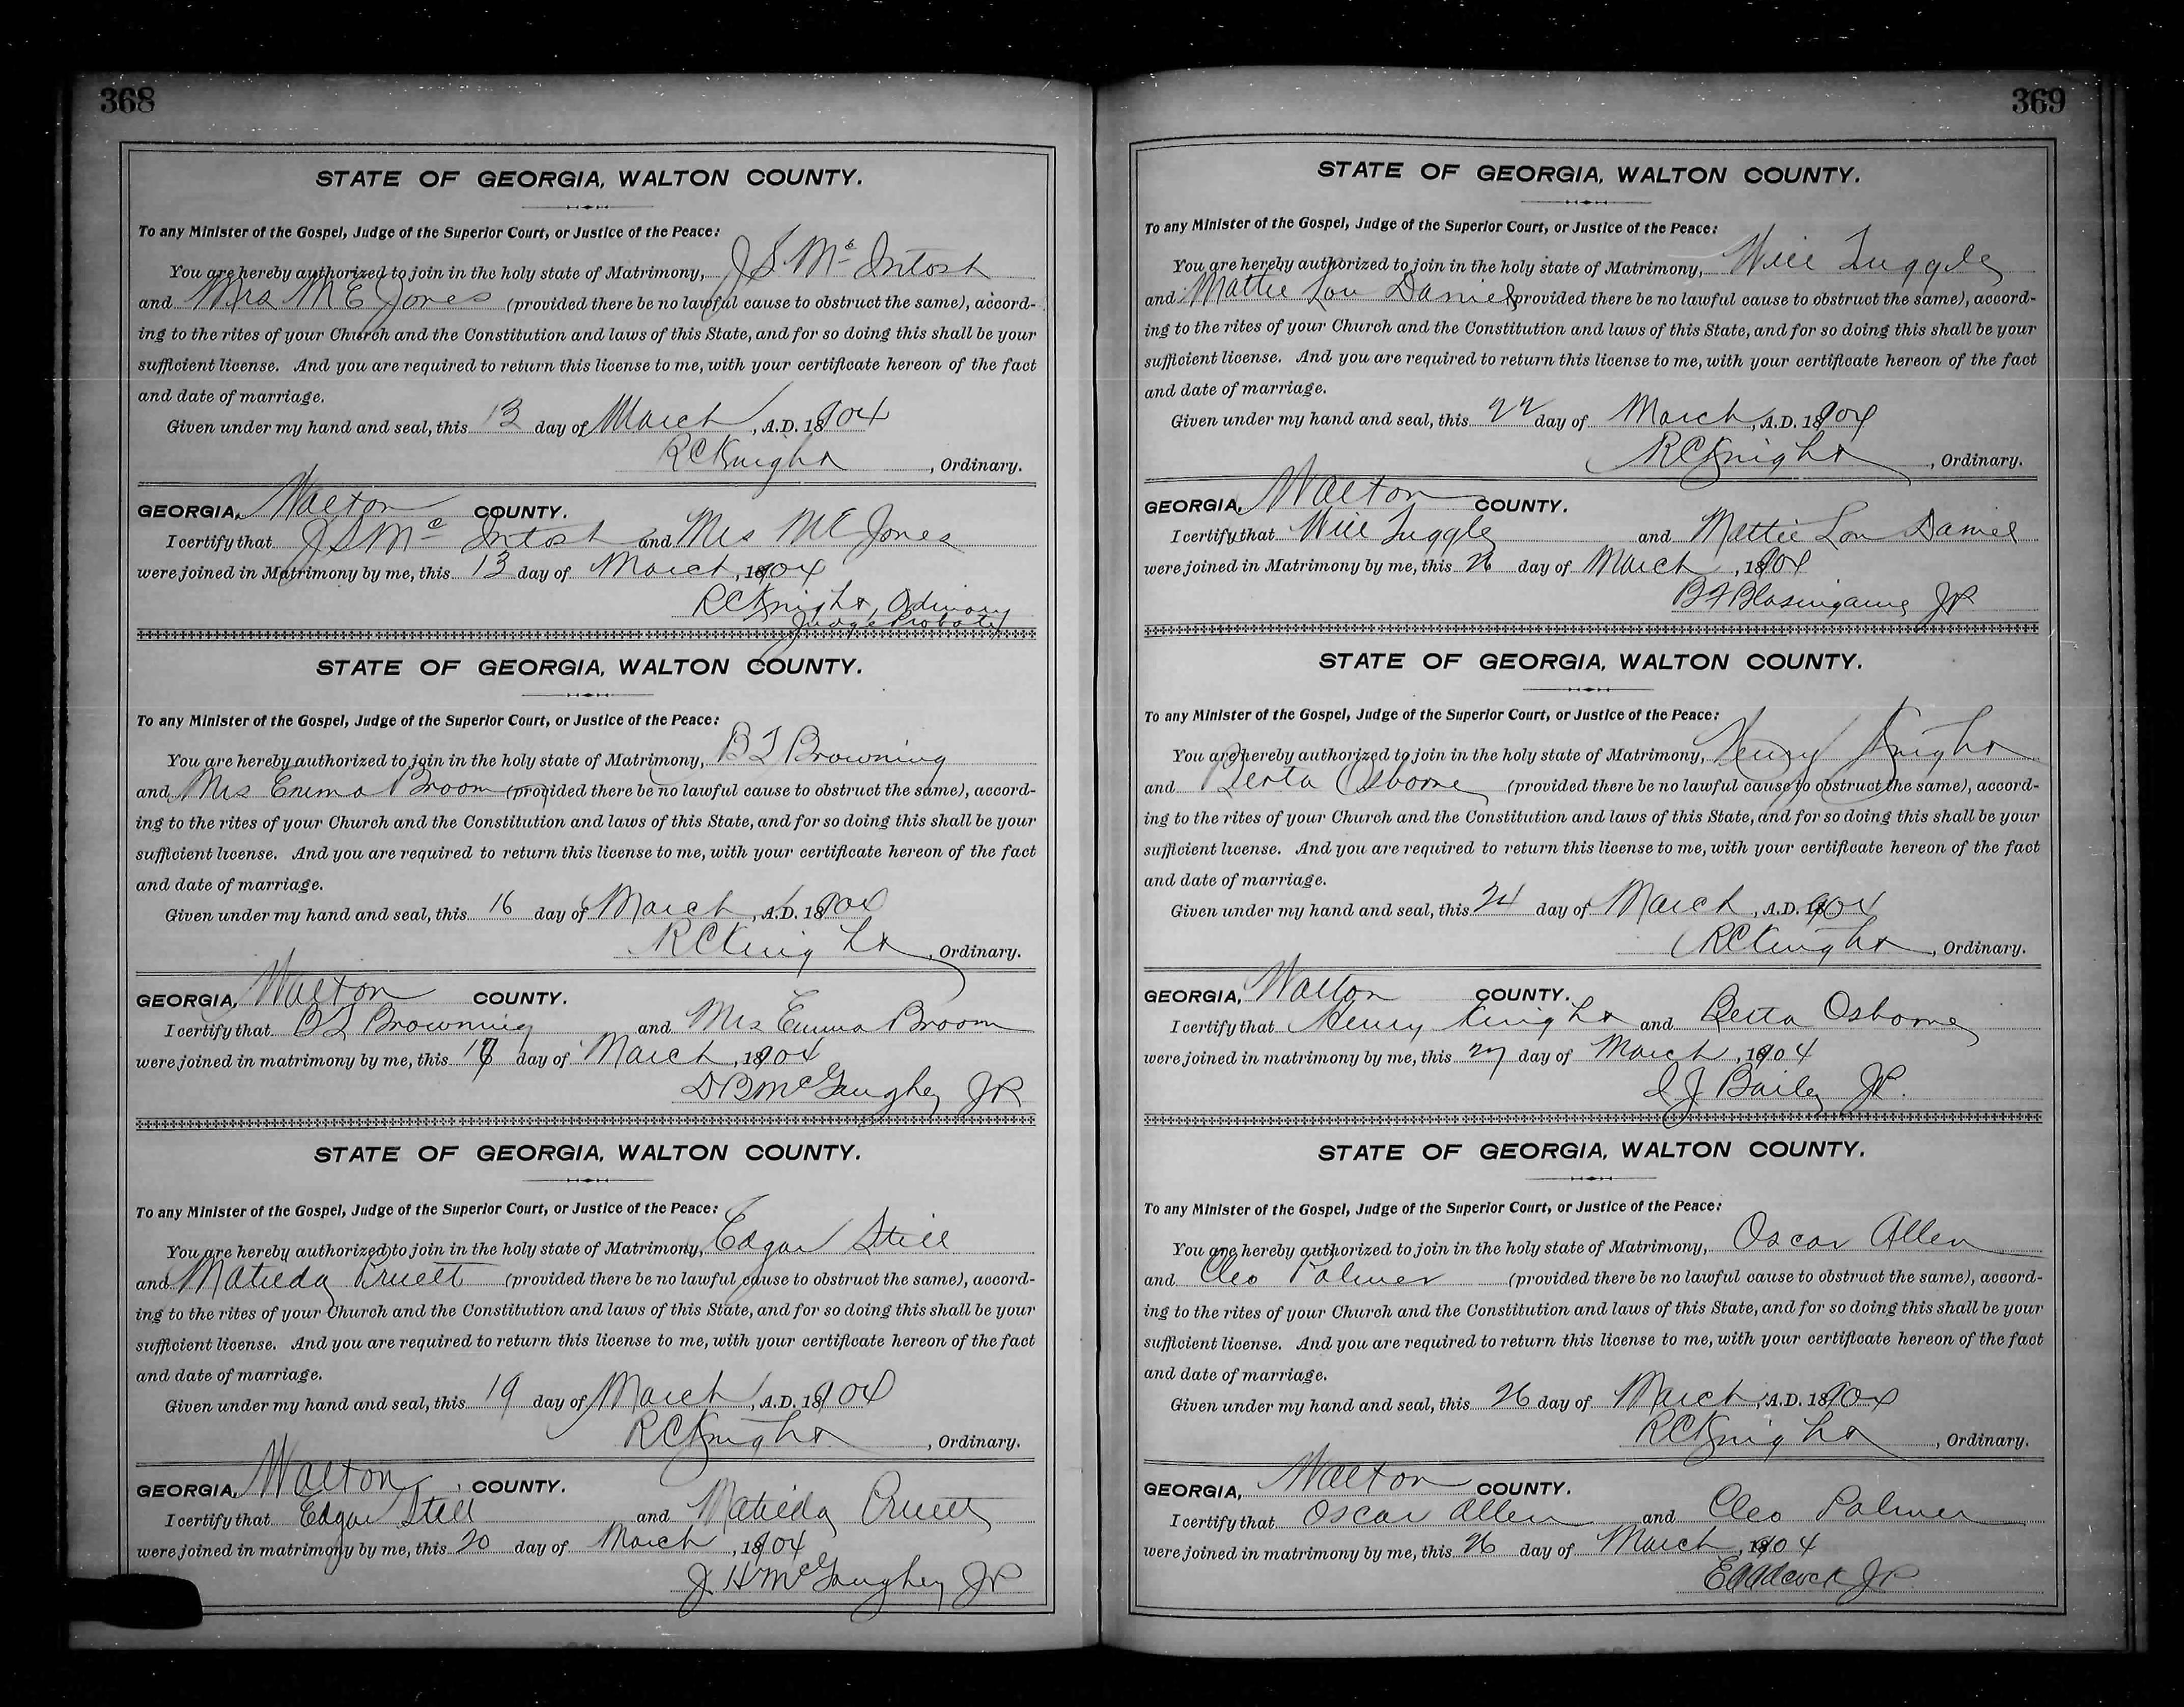 368
STATE OF GEORGIA, WALTON COUNTY.
To any Minister of the Gospel, Judge of the Superior Court, or Justice of the Peace:
You are hereby authorized to join in the holy state of Matrimony, J S. Mc Intosh
and Mrs M E Jones (provided there be no lawful cause to obstruct the same), accord-
ing to the rites of your Church and the Constitution and laws of this State, and for so doing this shall be your
sufficient license. And you are required to return this license to me, with your certificate hereon of the fact
and date of marriage.
Given under my hand and seal, this 13 day of March, A.D. 1904
R C Knight, Ordinary.
GEORGIA, Walton COUNTY.
I certify that J S Mc Intosh and Mrs M E Jones
were joined in Matrimony by me, this 13 day of March, 1904
R C Knight, Ordinary
Judge Probate
STATE OF GEORGIA, WALTON COUNTY.
To any Minister of the Gospel, Judge of the Superior Court, or Justice of the Peace:
You are hereby authorized to join in the holy state of Matrimony, Browning
and Mrs Emma Broom (provided there be no lawful cause to obstruct the same), accord-
ing to the rites of your Church and the Constitution and laws of this State, and for so doing this shall be your
sufficient license. And you are required to return this license to me, with your certificate hereon of the fact
and date of marriage.
Given under my hand and seal, this 16 day of March, A.D. 1904
R C Knight, Ordinary.
GEORGIA, Walton COUNTY.
I certify that Browning and Mrs Emma Broom
were joined in matrimony by me, this day of March, 1904
D B McGaughey JP
STATE OF GEORGIA, WALTON COUNTY.
To any Minister of the Gospel, Judge of the Superior Court, or Justice of the Peace:
You are hereby authorized to join in the holy state of Matrimony, Edgar Still
and Matilda Pruett (provided there be no lawful cause to obstruct the same), accord-
ing to the rites of your Church and the Constitution and laws of this State, and for so doing this shall be your
sufficient license. And you are required to return this license to me, with your certificate hereon of the fact
and date of marriage.
Given under my hand and seal, this 19 day of March, A.D. 1904
R C Knight, Ordinary.
GEORGIA, Walton COUNTY.
I certify that Edgar Still and Matilda Pruett
were joined in matrimony by me, this 20 day of March, 1904
J. H McGaughey JP
369
STATE OF GEORGIA, WALTON COUNTY.
To any Minister of the Gospel, Judge of the Superior Court, or Justice of the Peace:
You are hereby authorized to join in the holy state of Matrimony, Will Tuggle
and Mattie Lou Daniel (provided there be no lawful cause to obstruct the same), accord-
ing to the rites of your Church and the Constitution and laws of this State, and for so doing this shall be your
sufficient license. And you are required to return this license to me, with your certificate hereon of the fact
and date of marriage.
Given under my hand and seal, this 22 day of March, A.D. 1904
R C Knight, Ordinary.
GEORGIA, Walton COUNTY.
I certify that Will Tuggle and Mattie Lou Daniel
were joined in Matrimony by me, this 26 day of March, 1904
B F Blasingame JP
STATE OF GEORGIA, WALTON COUNTY.
To any Minister of the Gospel, Judge of the Superior Court, or Justice of the Peace:
You are hereby authorized to join in the holy state of Matrimony, Henry Knight
and Berta Osborne (provided there be no lawful cause to obstruct the same), accord-
ing to the rites of your Church and the Constitution and laws of this State, and for so doing this shall be your
sufficient license. And you are required to return this license to me, with your certificate hereon of the fact
and date of marriage.
Given under my hand and seal, this 24 day of March, A.D. 1904
R C Knight, Ordinary.
GEORGIA, Walton COUNTY.
I certify that Henry Knight and Berta Osborne
were joined in matrimony by me, this 27 day of March, 1904
J Bailey JP.
STATE OF GEORGIA, WALTON COUNTY.
To any Minister of the Gospel, Judge of the Superior Court, or Justice of the Peace:
You are hereby authorized to join in the holy state of Matrimony, Oscar Allen
and Cleo Palmer (provided there be no lawful cause to obstruct the same), accord-
ing to the rites of your Church and the Constitution and laws of this State, and for so doing this shall be your
sufficient license. And you are required to return this license to me, with your certificate hereon of the fact
and date of marriage.
Given under my hand and seal, this 26 day of March, A.D. 1904
R C Knight, Ordinary.
GEORGIA, Walton COUNTY.
I certify that Oscar Allen and Cleo Palmer
were joined in matrimony by me, this 26 day of March, 1904
Adcock JP